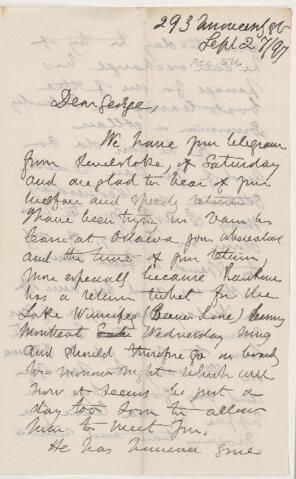 293
Sept 27/97
Dear George,
We have your telegram
from Revelstoke, of Saturday
and are glad to hear of your
welfare and speedy return.
I have been trying in vain to
learn at Ottawa your whereabouts
and the time of your return,
more especially because
has a return ticket for the
Lake Winnipeg (Beaver Line) leaving
Montreal Wednesday mng
and should therefore go on board
to-morrow night which will
now it seems be just a
day too soon to allow
him to meet you.
He has